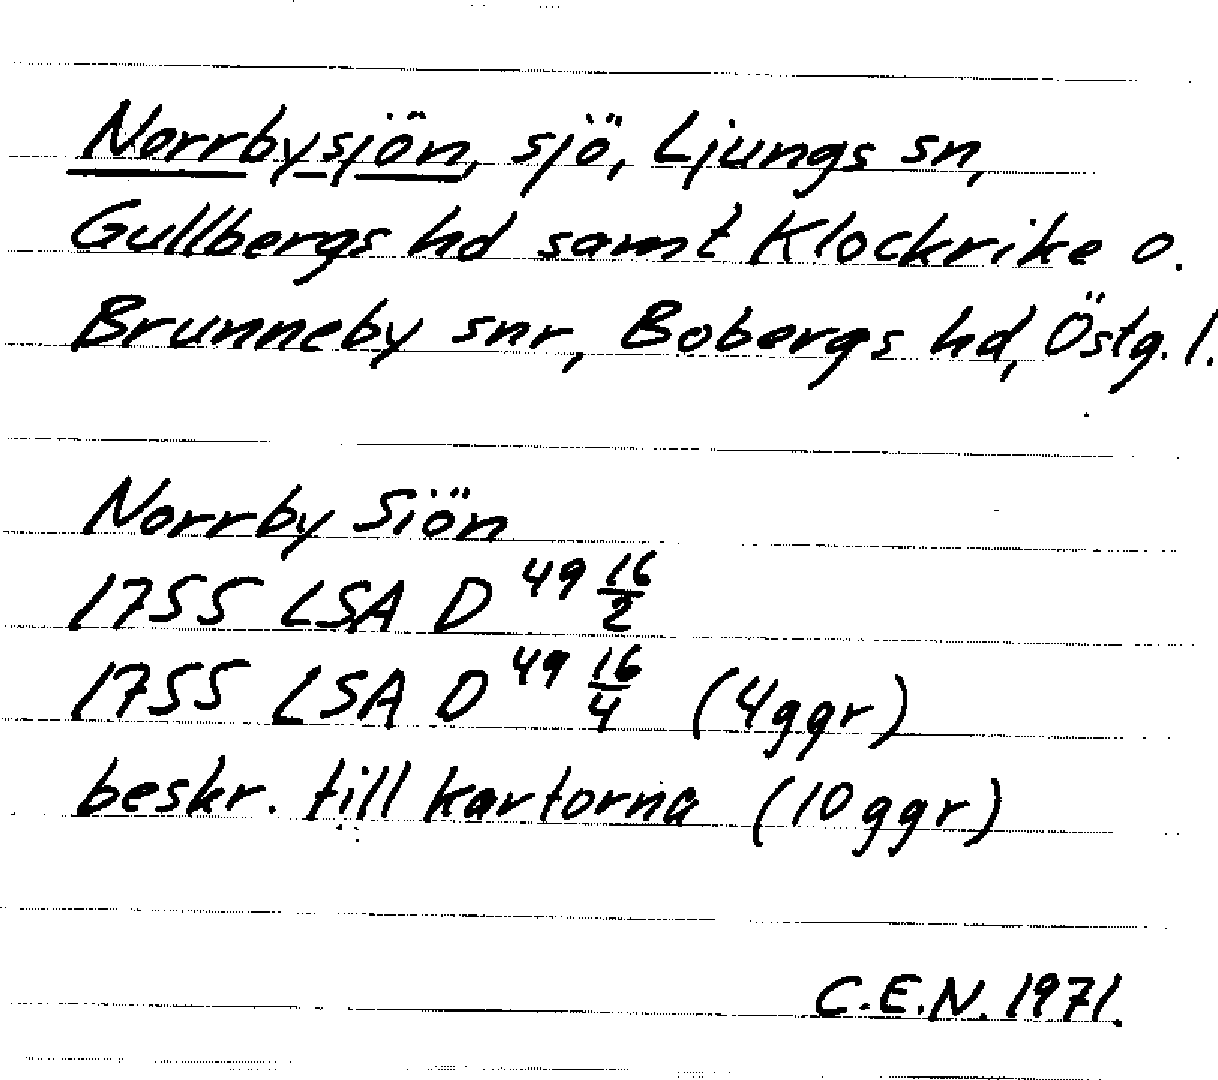 Norrbysjön, sjö, Ljungs sn,
Gullbergs hd samt Klockrike o.
Brunneby snr, Bobergs hd, Östg. l.
Norrby Siön
1755 LSA D 49 16/2
1755 LSA D 49 16/4 (4ggr)
beskr. till kartorna (10 ggr)
C.E.N. 1971.